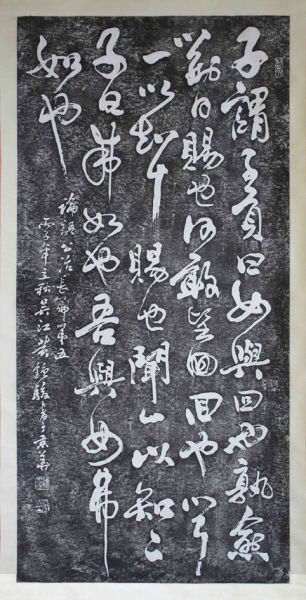 子謂子貢曰女與回也孰愈
對曰賜也何敢望回回也聞
一以知十賜也聞一以知二
子曰弗如也吾與女弗
如也
論語公冶長篇第五